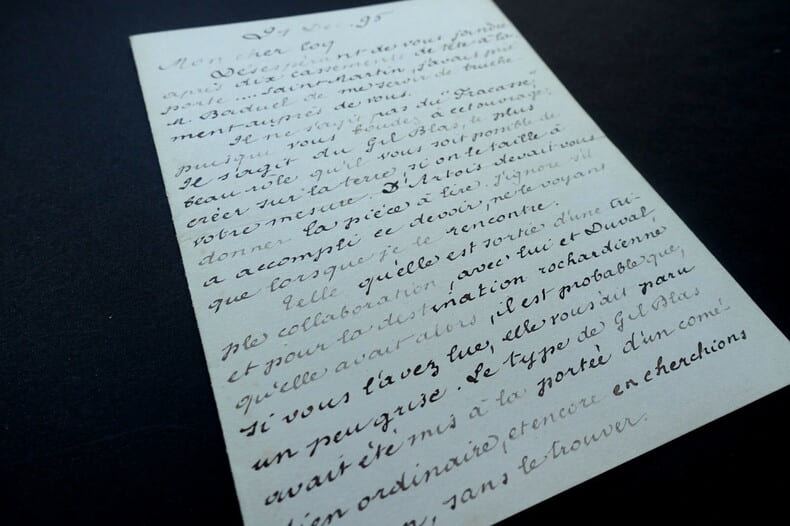 24 Dec. 95
Mon cher Coq
Désespérant de vous joindre
après dix cassements de tête à la
porte ... Saint-Martin, j'avais prié
M. Baduel de me servir de truche-
ment auprès de vous.
Il ne s'agit pas du "Fracasse",
puisque vous boudez à cet ouvrage;
Il s'agit du Gil Blas, le plus
beau rôle qu'il vous soit possible de
créer sur la terre, si on le taille à
votre mesure. D'Artois devait vous
donner la pièce à lire. J'ignore s'il
a accompli ce devoir, ne le voyant
que lorsque je le rencontre.
Telle qu'elle est sortie d'une tri-
ple collaboration, avec lui et Duval,
et pour la destination rochardienne
qu'elle avait alors, il est probable que,
si vous l'avez lue, elle vous ait paru
un peu grise. Le type de Gil Blas
avait été mis à la portée d'un comé-
dien ordinaire, et encore en cherchions
n, sans le trouver.